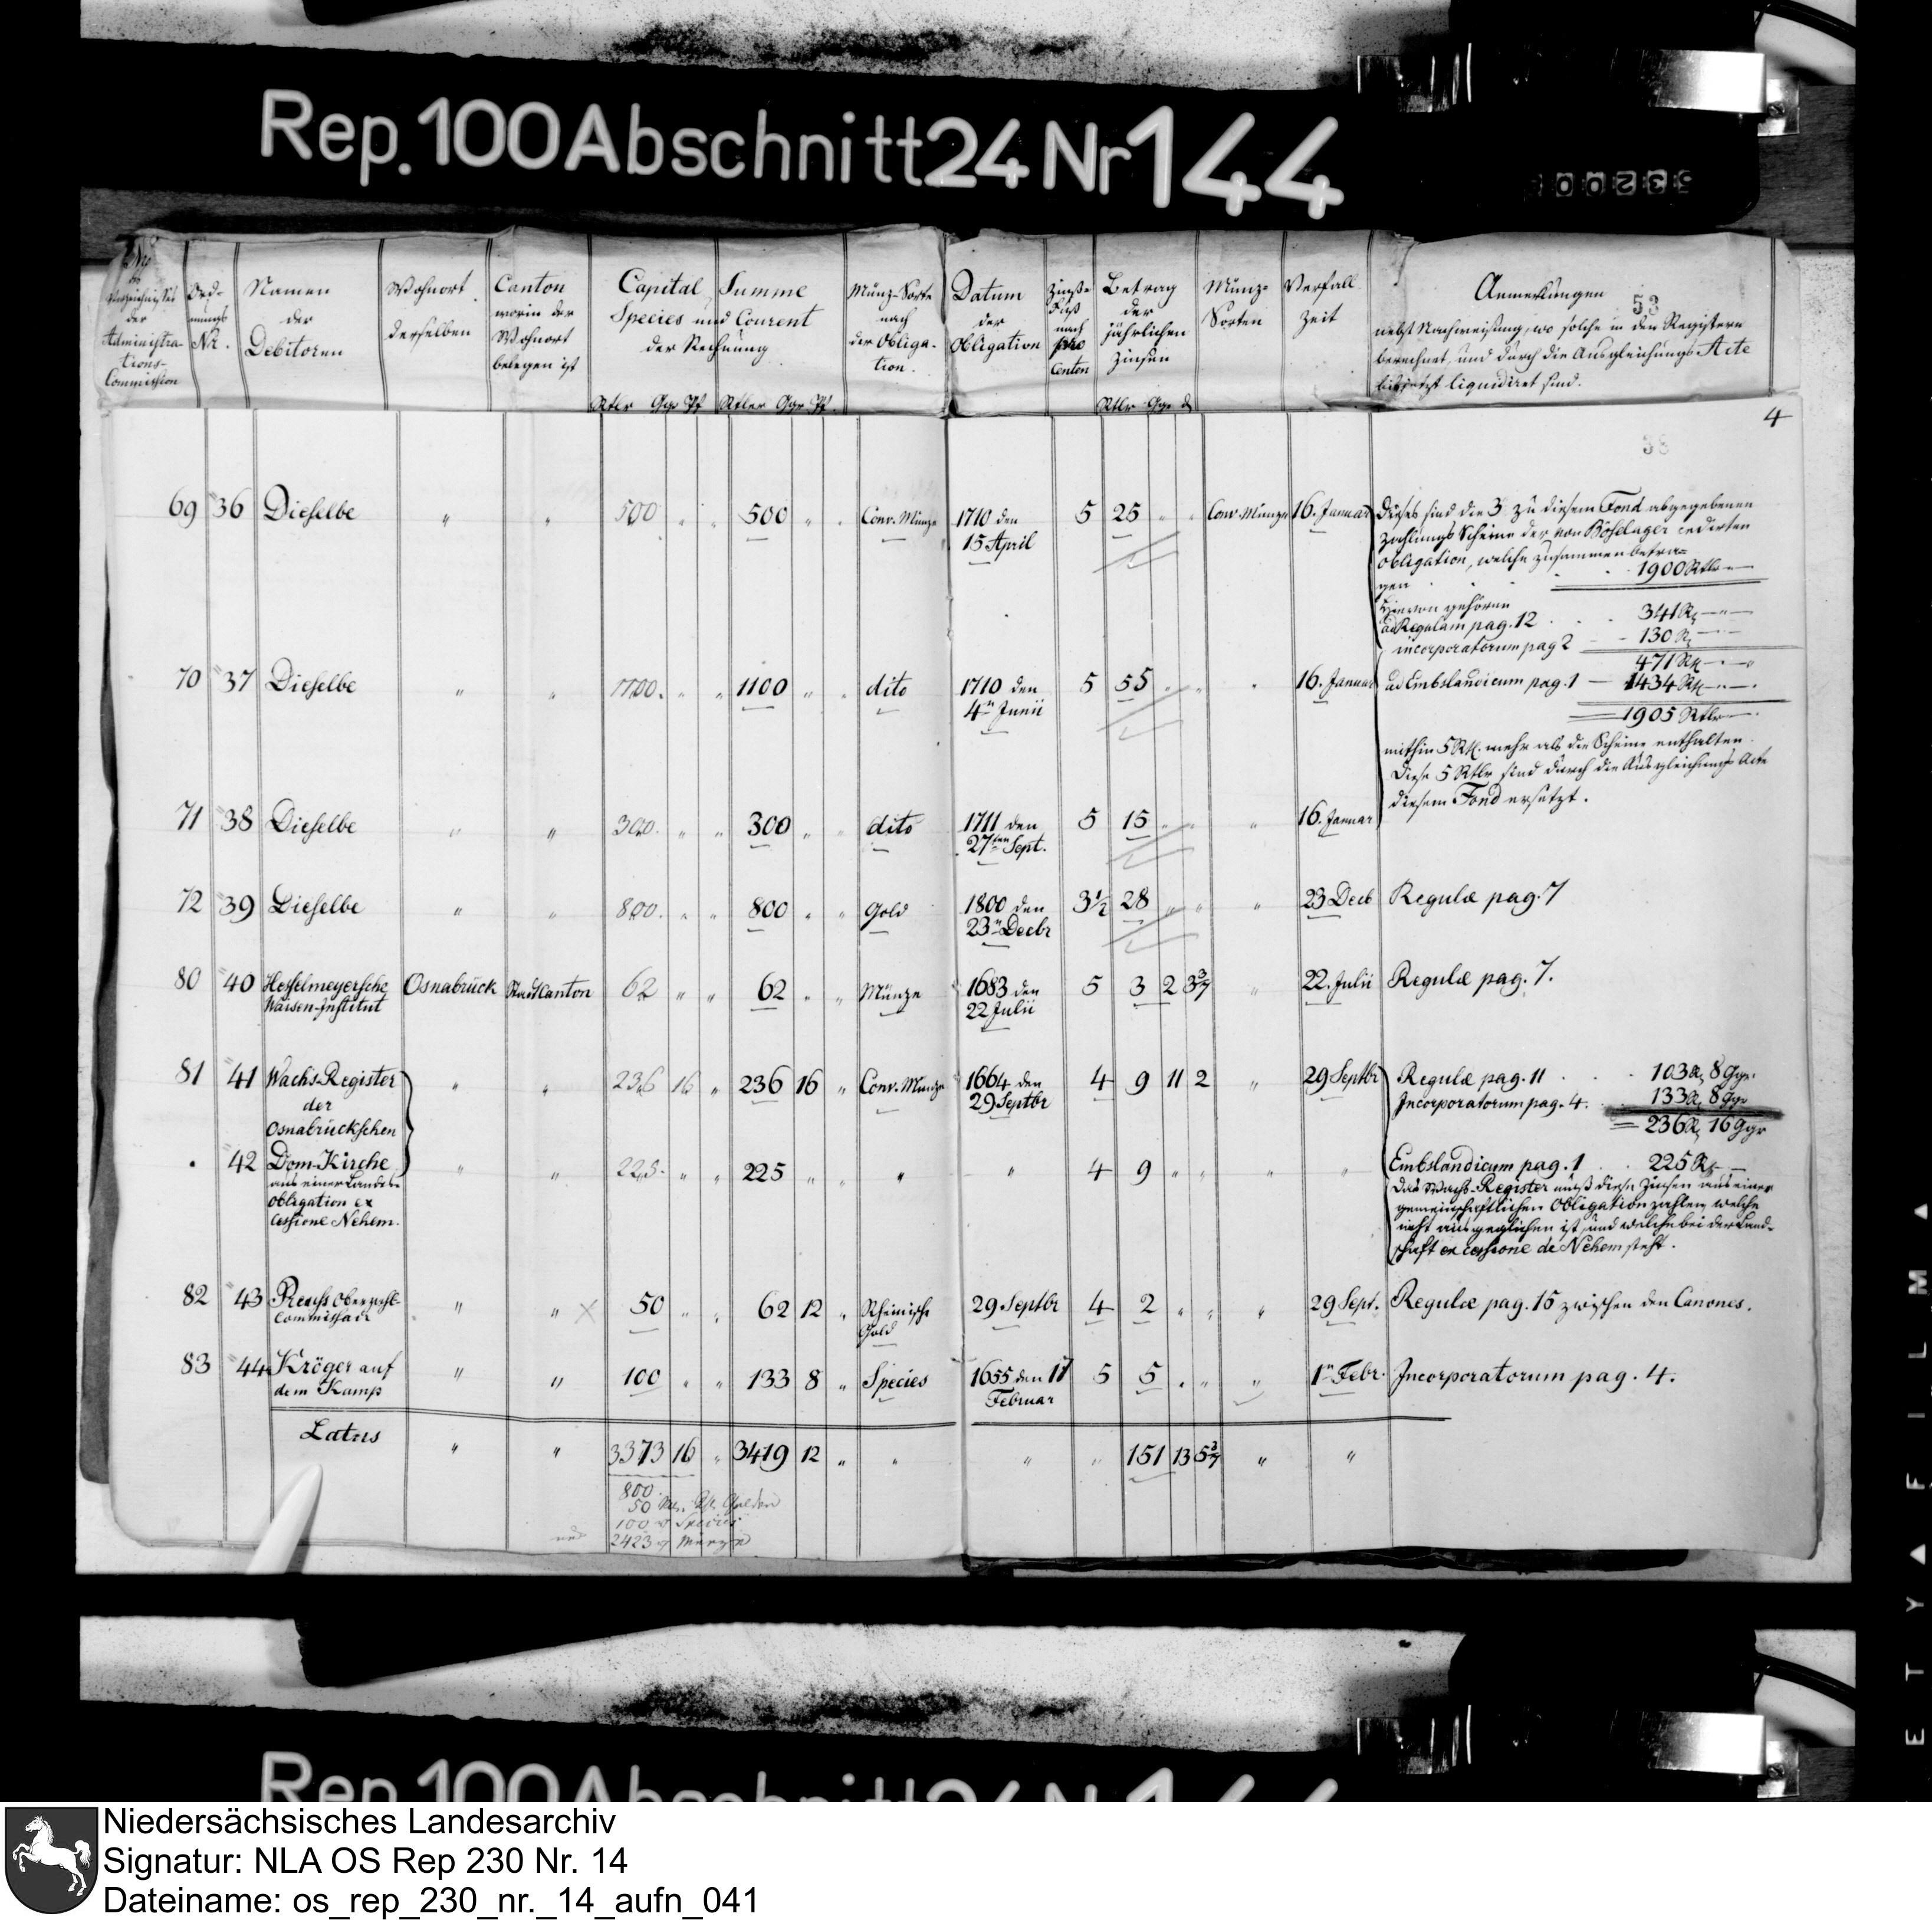 Rep. 100 Abschnitt 24 Nr 144
53
No
des
Verzeichnisses
der
Administra-
tions-
Commission
Ord-
nungs
Nr.
Namen
der
Debitoren
Wohnort
derselben
Canton
worin der
Wohnort
belegen ist
Capital Summe
Species und Courent
der Rechnung
Rtlr Ggr Pf Rtler Ggr Pf.
Münz-Sorte
nach
der Obliga-
tion.
Datum
der
Obligation
Zinß-
Fuß
nach
pro
Centen
Betrag
der
jährlichen
Zinsen
Rtlr Ggr
Münz-
Sorten
Verfall
Zeit
Anmerkungen
nebst Nachweisung, wo solche in den Registern
berechnet, und durch die Ausgleichungs Acte
liquidiret sind.
4
38
69 36 Dieselbe " " 500 " " 500 " " Conv. Münze 1710 den 5 25 " " Conv. Münze 16. Januar
15 April
Dieses sind die 3 zu diesem Fond abgegebenen
Zahlungs Scheine der von Böselager cedirten
Obligation, welche zusammen betra-
gen . . 1900 Rtlr
Hiervon gehören
ad Regulam pag. 12 . . 341 R
incorporatorum pag 2 - - 130 R
471 Rtl
70 37 Dieselbe " " 1100. " " 1100 " " dito 1710 den 5 55 " " " 16. Januar ad Embslandicum pag. 1 — 1434 Rtl
4n Junii
1905 Rtlr
mithin 5 Rtl. mehr als die Scheine enthalten.
Diese 5 Rtlr sind durch die Ausgleichungs Acte
diesem Fond ersetzt.
71 38 Dieselbe " " 300. " " 300 " " dito 1711 den 5 15 " " " 16. Januar
27ten Sept.
72 39 Dieselbe " " 800. " " 800 " " Gold 1800 den 3½ 28 " " " 23 Decb Regulæ pag. 7
23n Decbr
80 40 Hesselmeyersche Osnabrück Stadt Canton 62 " " 62 " " Münze 1683 den 5 3 2 3 3/7 " 22. Julii Regulæ pag. 7.
Waisen-Institut 22 Julii
81 41 Wachs-Register " " 236 16 " 236 16 " Conv. Münze 1664 den 4 9 11 2 29 Septbr Regulæ pag. 11 . . 103 R 8 Ggr.
der 29 Septbr Incorporatorum pag. 4. . 133 R 8 Ggr
Osnabrückschen = 236 R 16 Ggr
. 42 Dom-Kirche " " 225. " " 225 " " " " 4 9 " " " " Embslandicum pag. 1 . . 225 R
aus einer Landes-
Obligation ex
cessione Nehem.
Das Wachs-Register muß diese Zinsen aus einer
gemeinschaftlichen Obligation zahlen, welche
nicht ausgeglichen ist, und welche bei der Land-
schaft ex cessione de Nehem steht.
82 43 " " 50 " " 62 12 " Rheinische 29 Septbr 4 2 " " " 29 Sept. Regulæ pag. 15 zwischen den Canones.
Commissair Gold
83 44 Kröger auf " " 100 " " 133 8 " Species 1655 den 17 5 5 " " " 1n Febr. Incorporatorum pag. 4.
dem Kamp Februar
Latus " " 3373 16 " 3419 12 " " " " 151 13 5 3/7 " "
800.
50
100 Species
2423 Münze
ETY▲FILM▲
Rep. 100 Abschnitt 24 Nr 144
Niedersächsisches Landesarchiv
Signatur: NLA OS Rep 230 Nr. 14
Dateiname: os_rep_230_nr._14_aufn_041